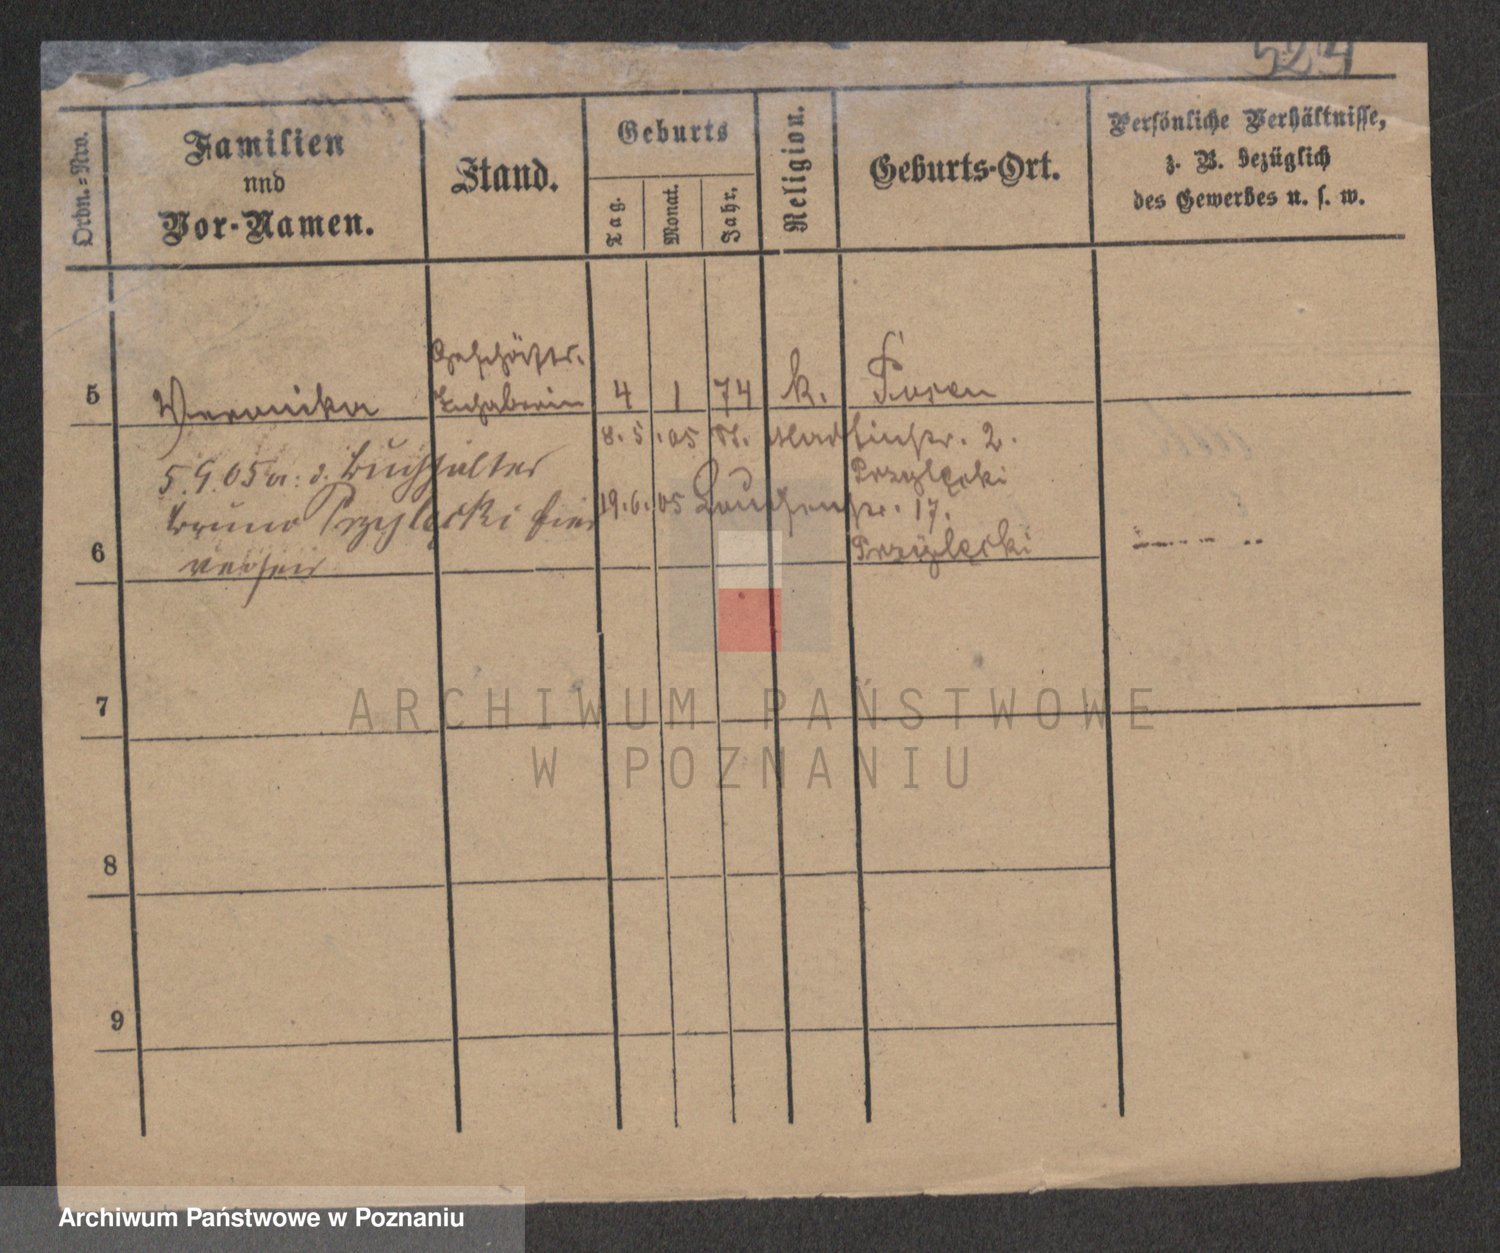 524
Ordn.-Nro.
Familien
und
Vor-Namen.
Stand.
Geburts
Tag.
Monat.
Jahr.
Religion.
Geburts-Ort.
Persönliche Verhältnisse,
z. B. bezüglich
des Gewerbes u. s. w.
Geschäfts-
5 Veronika Inhaberin 4 1 74 k. Posen
8. 5. 05 St. Martinstr. 2.
5.9.05 Buchhalter Przylęcki
Bruno Przylęcki 19. 6. 05 17.
6 Przylęcki
7
ARCHIWUM PAŃSTWOWE
W POZNANIU
8
9
Archiwum Państwowe w Poznaniu